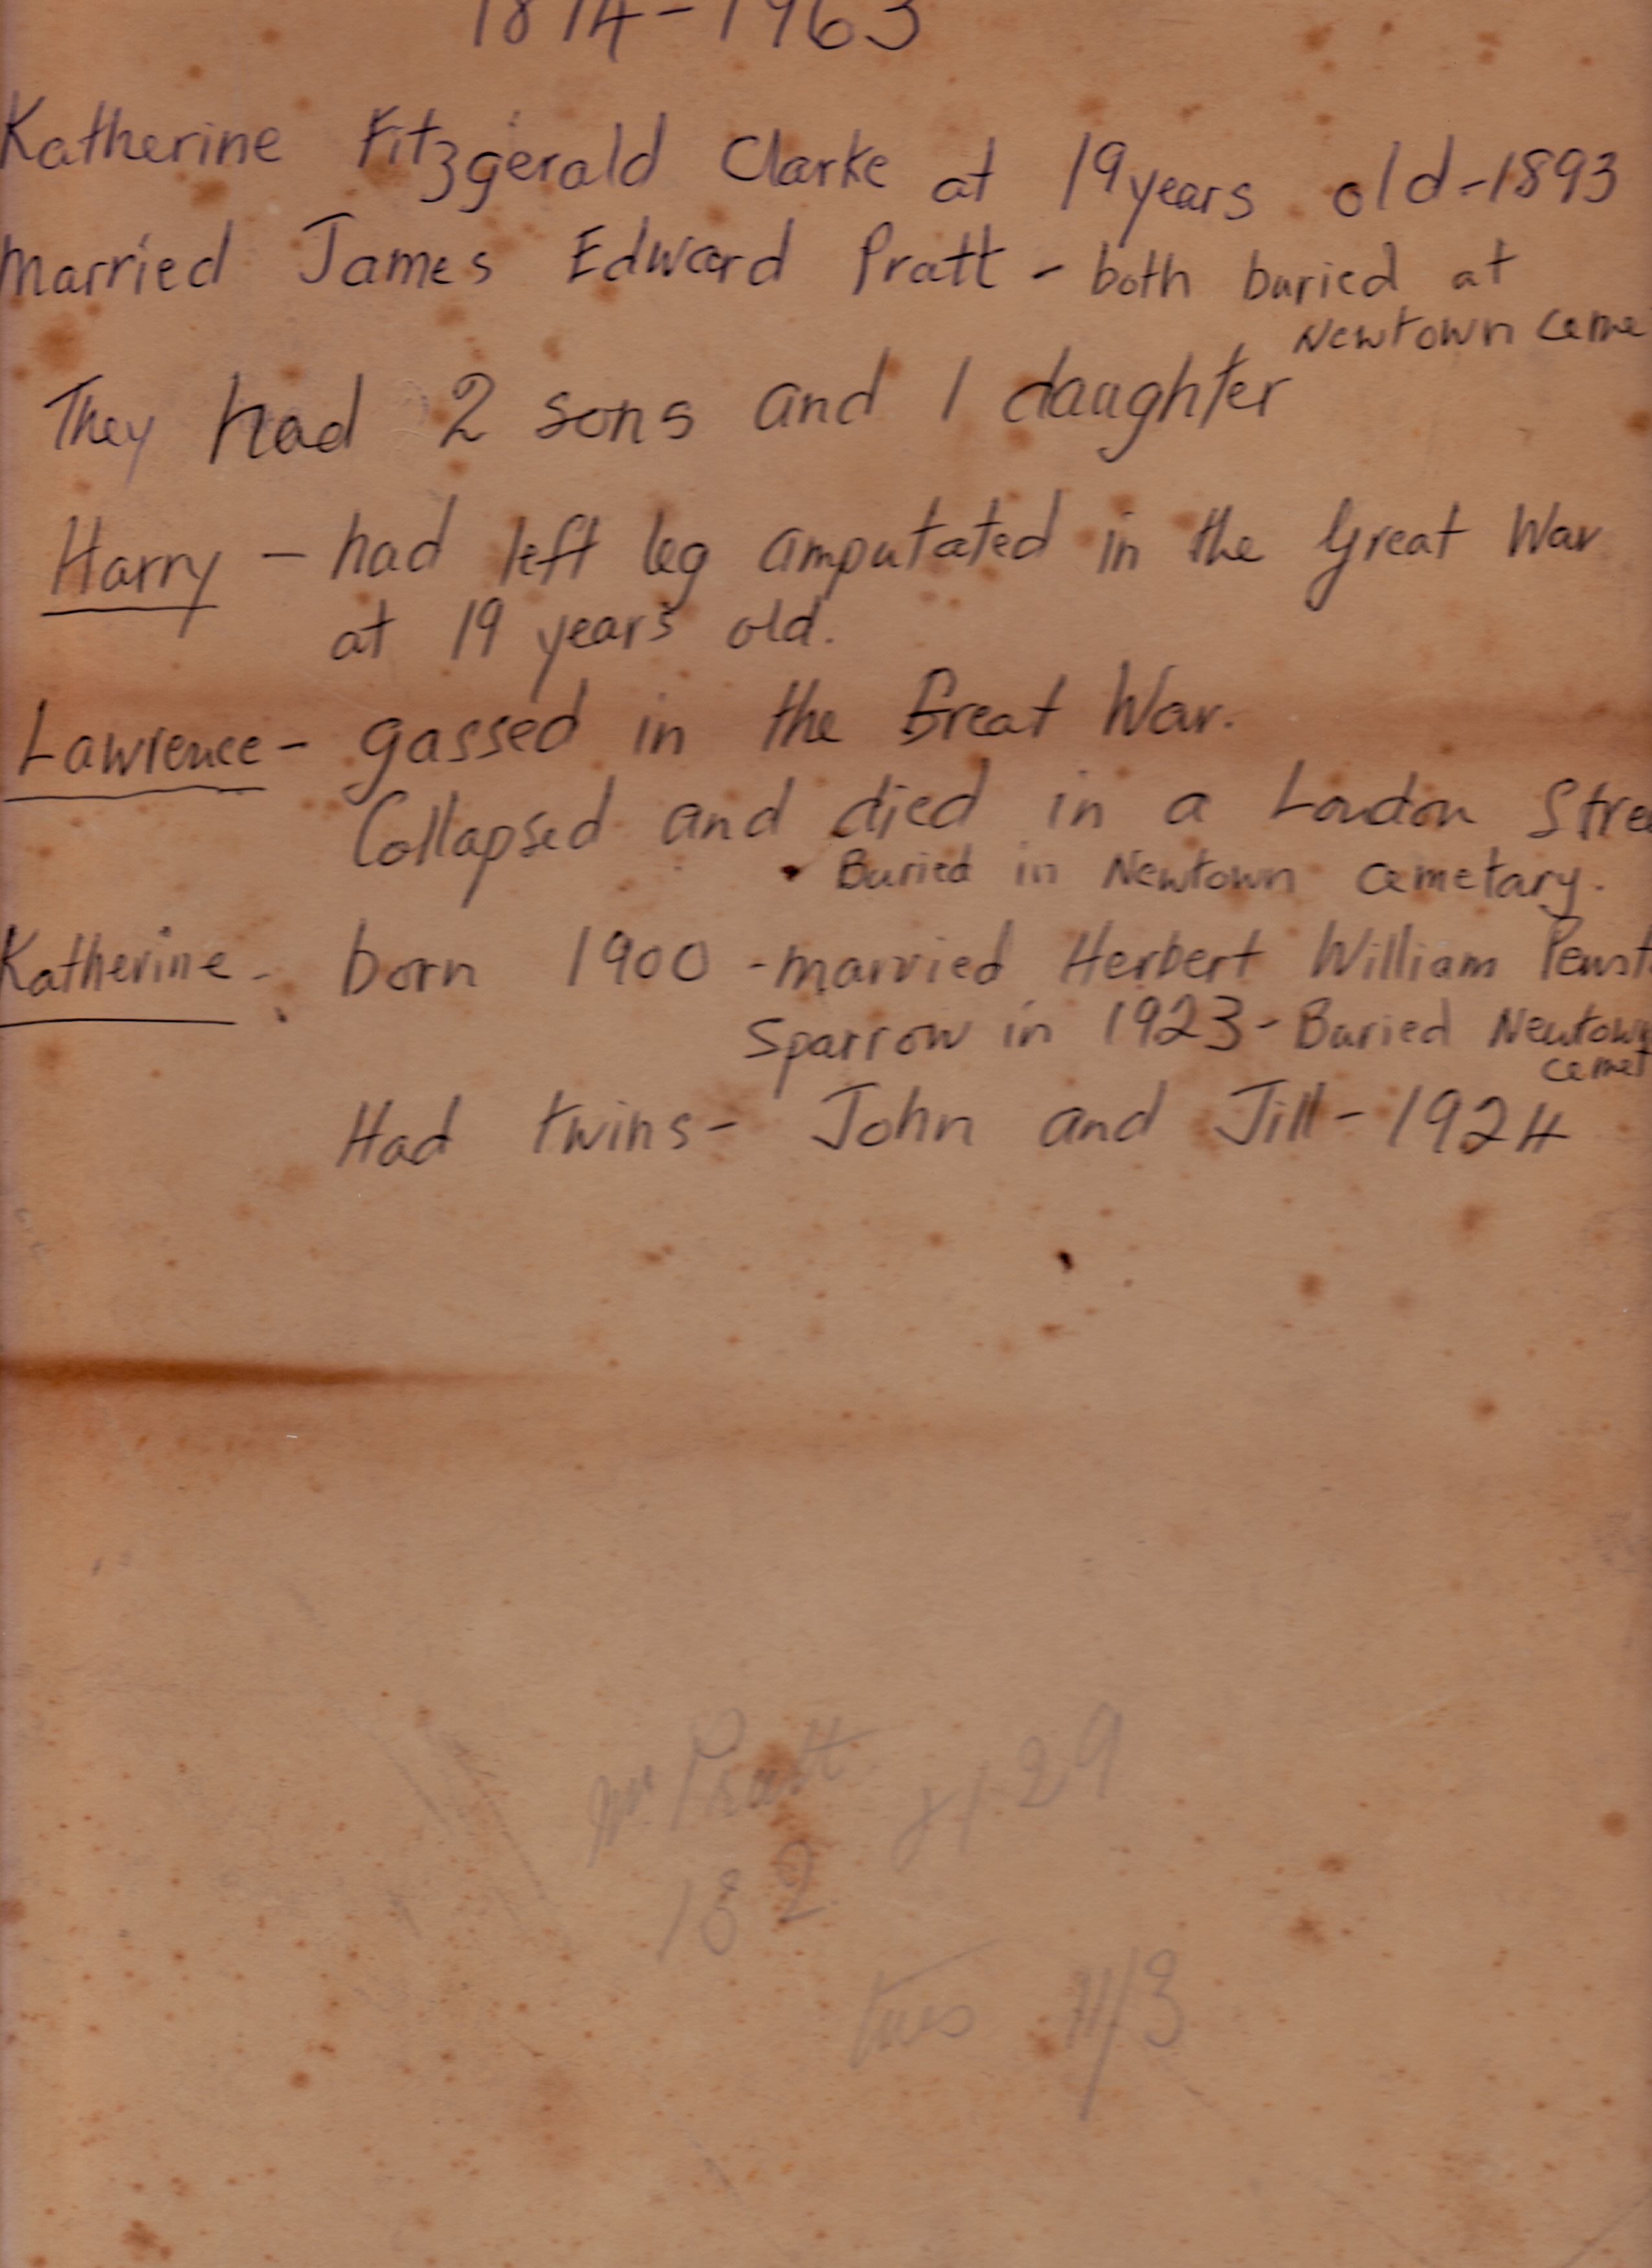 1874-1963
Katherine Fitzgerald Clarke at 19 years old - 1893
Married James Edward Pratt - both buried at
Newtown Ceme
They had 2 sons and 1 daughter
Harry - had left leg amputated in the Great War
at 19 years old.
Lawrence - gassed in the Great War.
Collapsed and died in a London Stree
Buried in Newtown Cemetary.
Katherine - born 1900 - married Herbert William
Sparrow in 1923 - Buried Newtown
cemet
Had twins - John and Jill - 1924
Mr Pratt
182
Tues